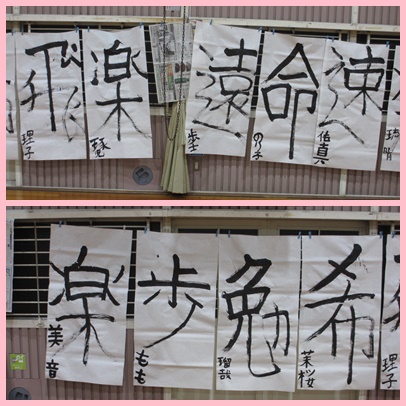 飛
理子
楽
遠
歩
命
の子
速
佑真
楽
美音
歩
もも
勉
瑠哉
希
茉桜
理子